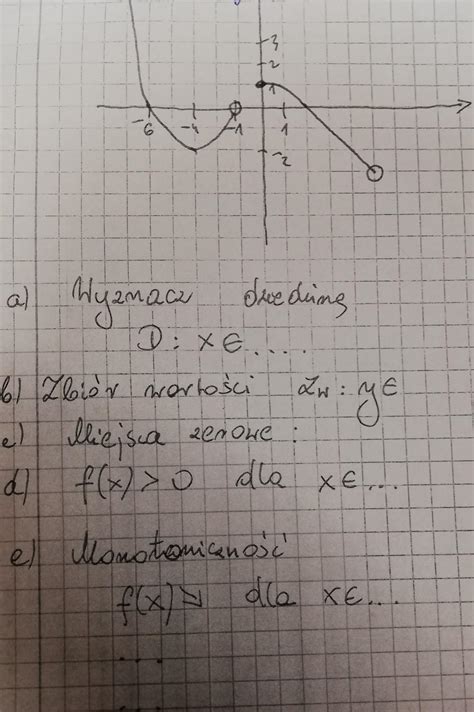 3
2
1
-6 -4 -1 1
-2
a) Wyznacz dziedzinę
D: x∈.....
b) Zbiór wartości Zw: y∈
c) Miejsca zerowe:
d) f(x)>0 dla x∈...
e) Monotoniczność
f(x)↘ dla x∈...
...
...